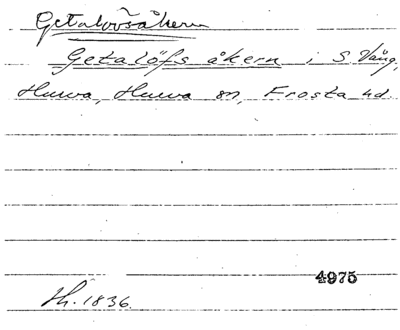 Getalövsåkern
Getalöfs åkern i S. Vång,
Hurva, Hurva sn, Frosta hd.
4975
Th. 1836.